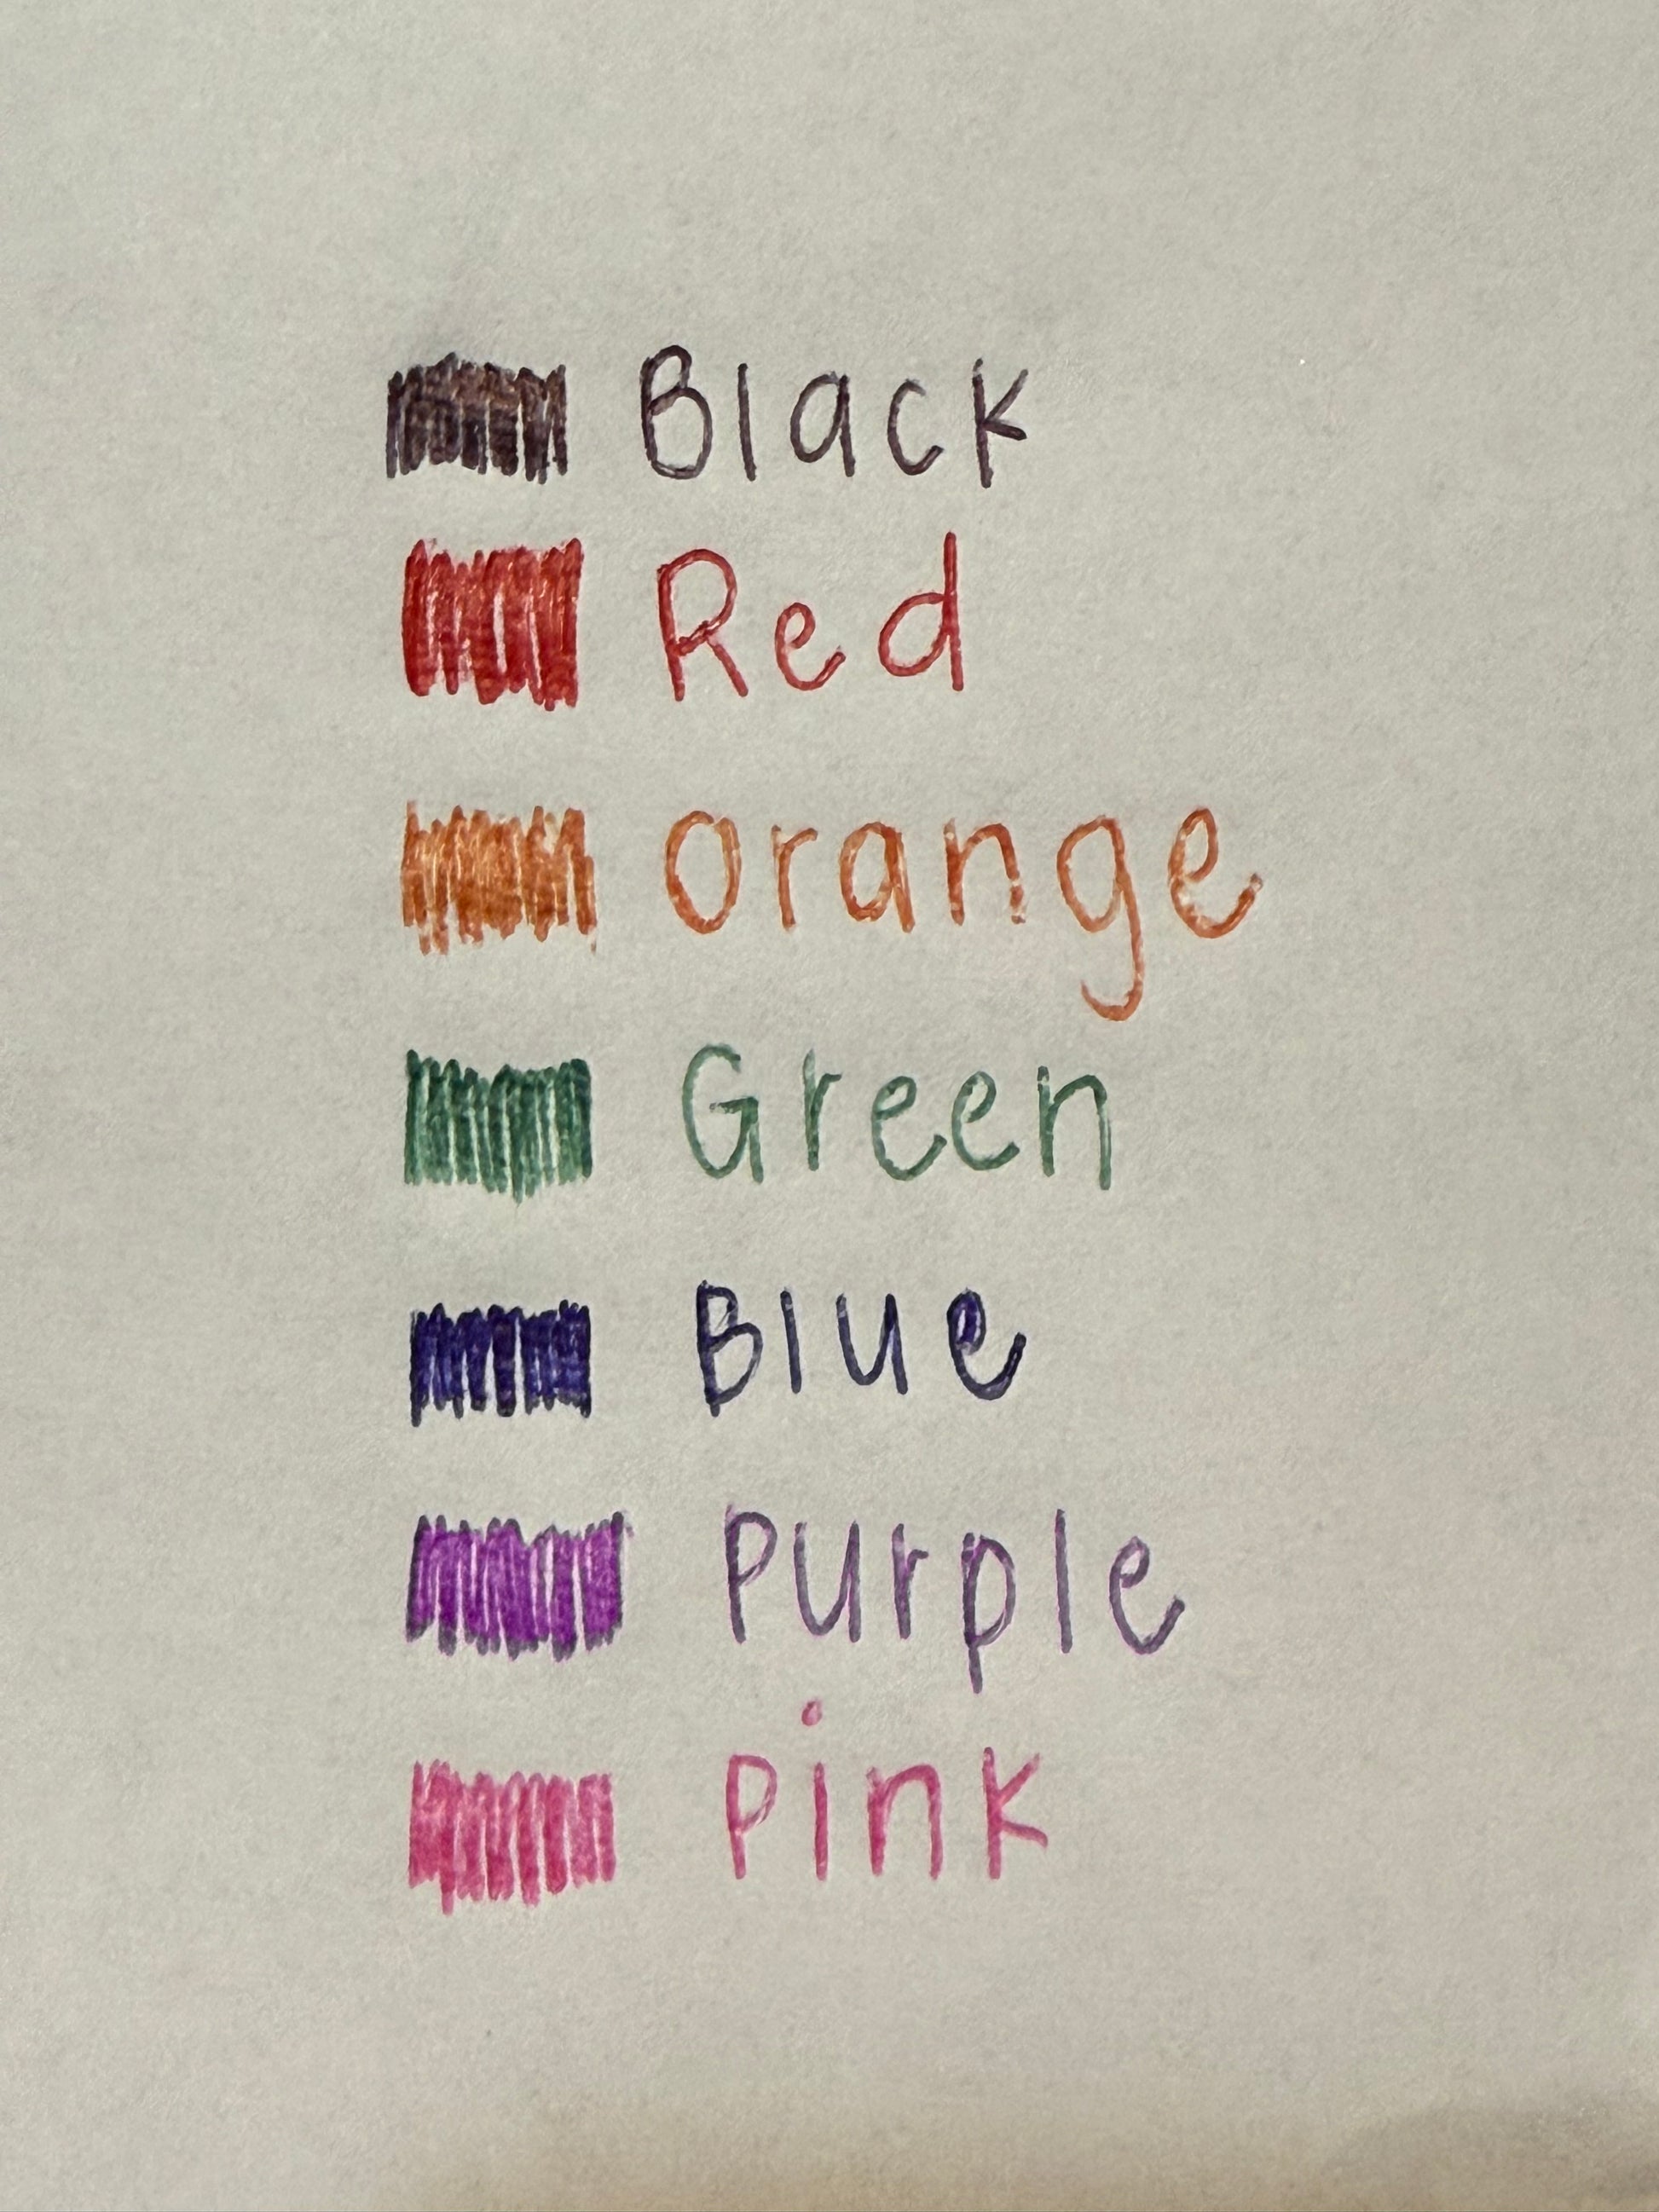 Black
Red
Orange
Green
Blue
Purple
Pink